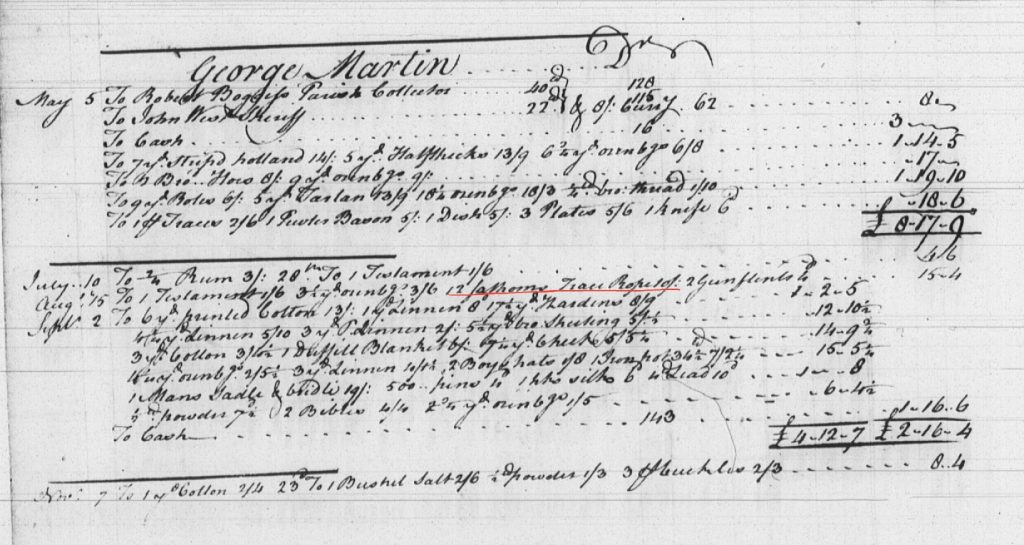 George Martin . . . . . Dr
May 5 To Robert Boggess Parish Collector 40 128
To John West Sheriff 22 116 & 8/: Curry. 62 . . . 8
To Cash . . . 16 . . . 3
To 7 yds: holland 14/: 5 yds. Halfthicks 13/9 6¾ yds ozenbgs 6/8 1 . 14 . 5
To 2 Bro: Hoes 8/: 9 yds ozenbgs 9/: . . . 17
To 9 yds Rolls 6/: 5 yds Tartan 13/9 18¼ ozenbgs 18/3 ½ bro: thread 1/10 1 . 19 . 10
To 1 pr Traces 2/6 1 Pewter Bason 5/: 1 Dish 5/: 3 Plates 5/6 1 knife 6 . . . 18 . 6
£ 8 . 17 . 9
July . 10 To Rum 3/: 28th To 1 Testament 1/6 . . . 4/6
Augt 15 To 1 Testament 1/6 3½ yds ozenbgs 3/6 12 fathoms Trace Rope 10/: 2 Gunflints 4 15 . 4
Septr 2 To 6 yds printed Cotton 13/: 1 yd Linnen 8 7½ yds 8/9 1 . 2 . 5
yds Linnen 5/10 3 yds Linnen 2/: 5½ yds bro: Sheeting 5/ . . . 12 . 10½
3 yds Cotton 3/10½ 1 Duffill Blanket 6/: 7¾ yds Check 5/5¼ . . . 14 . 9¾
yds ozenbgs 2/5½ 3 yds Linnen 4/ 2 Boys hats 1 Iron pot 34½ 7/2¼ 15 . 5¼
1 Mans Sadle & bridle 19/: 500 pins 4 1 hks silk 6 4 Lead 10 1 . " . 8
½ powder 7½ 2 Bibles 4/4 yds ozenbgs 1/5 . . . 6 . 4½
To Cash . . . 143 . . . 1 . 16 . 6
£ 4 . 12 . 7 £ 2 . 16 . 4
Novr 7 To 1 yd Cotton 2/4 23d To 1 Bushel Salt 2/6 ½ powder 1/3 3 pr Buckles 2/3 . . . 8 . 4